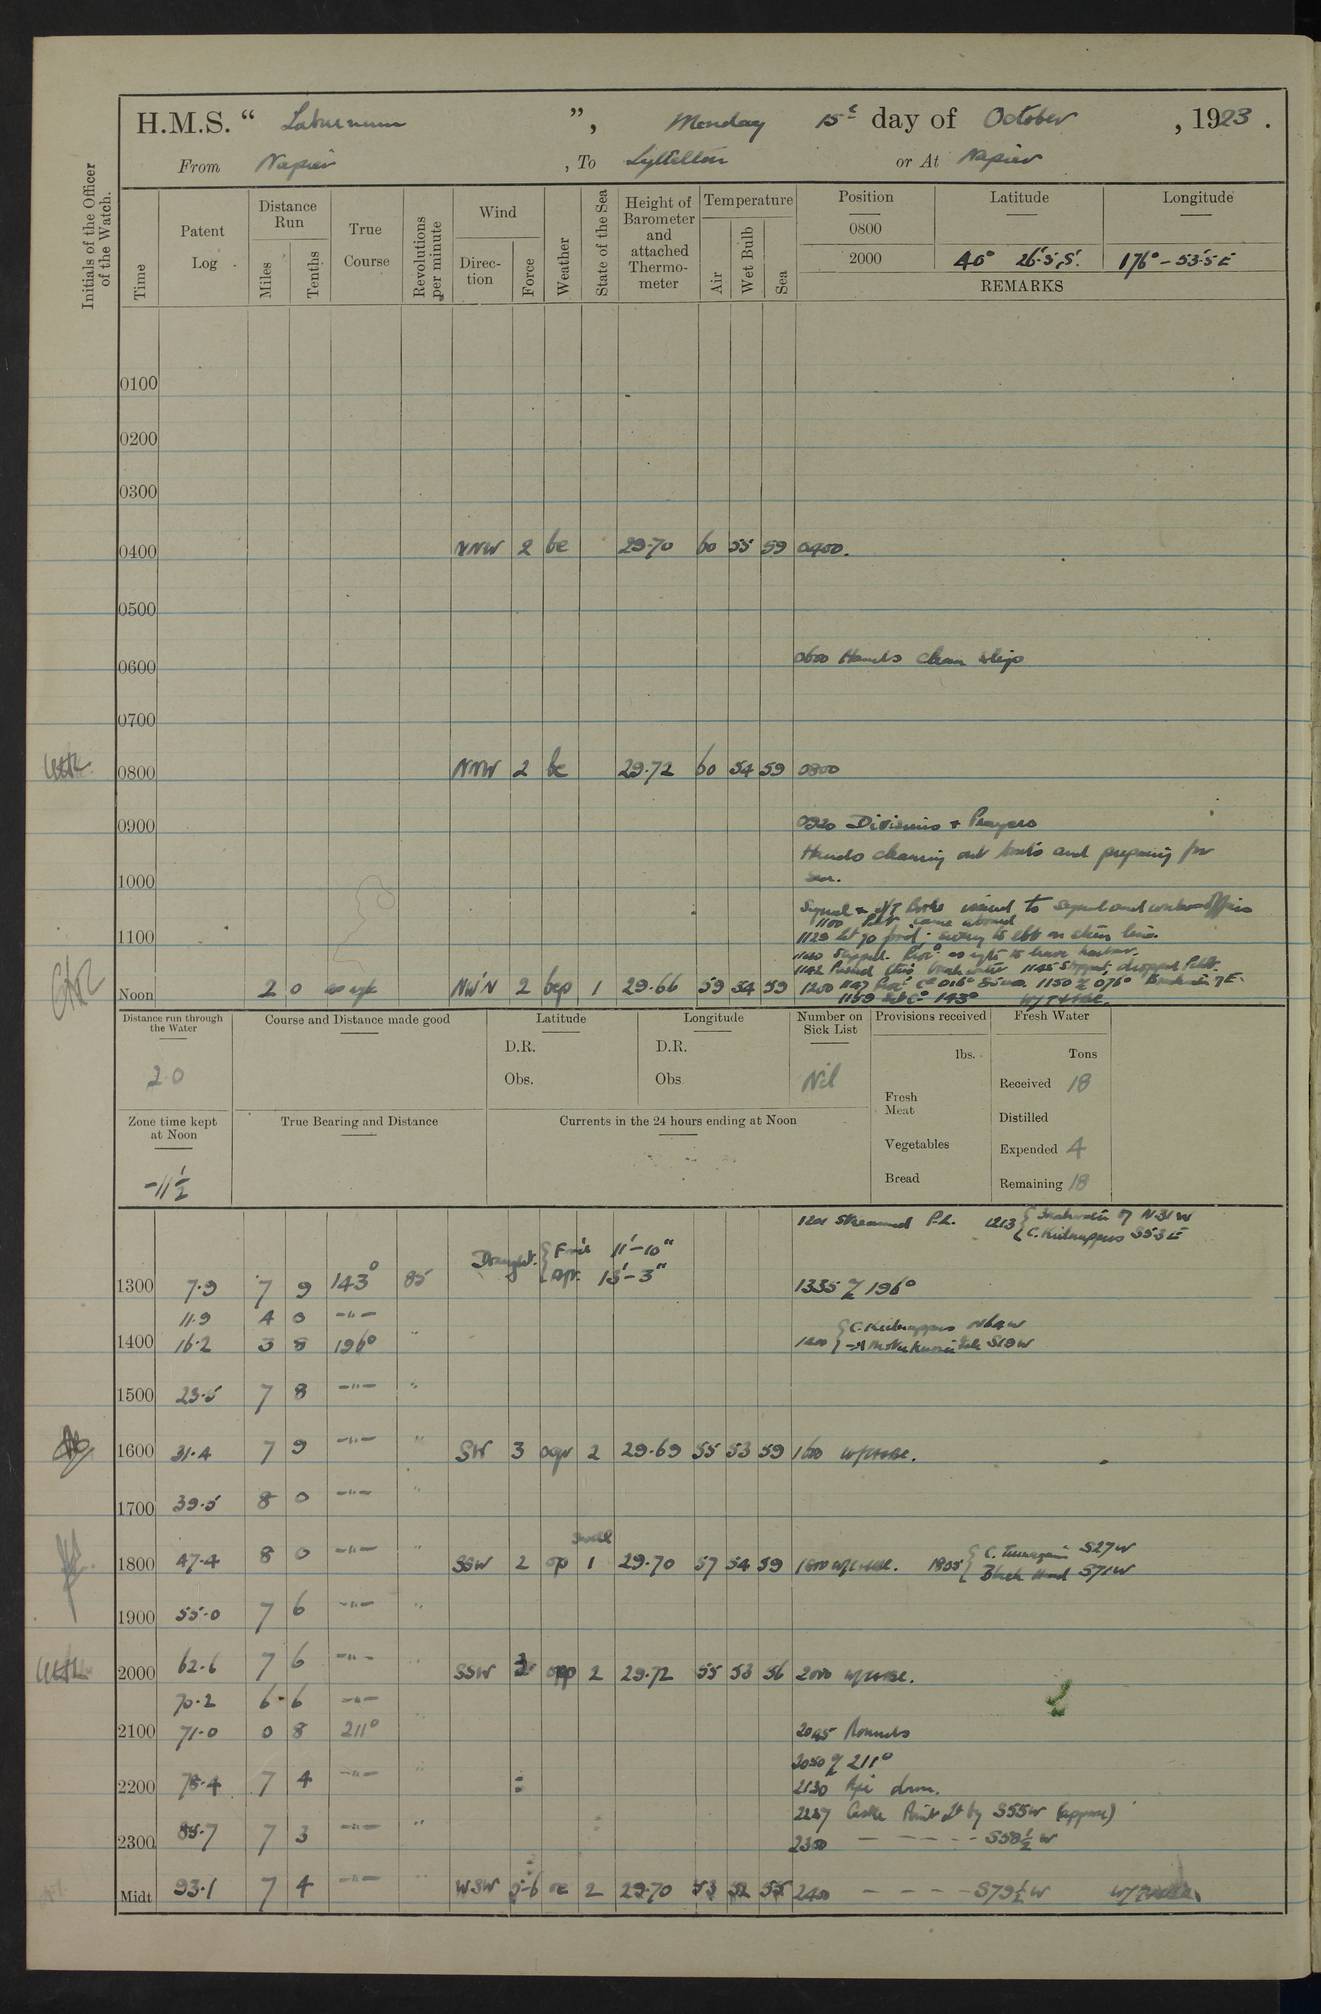 H.M.S. “ Laburnum ”, Monday 15th day of October , 1923 .
From Napier , To Lyttelton or At Napier
Initials of the Officer of the Watch.
Time
Patent Log
Distance Run
Miles
Tenths
True Course
Revolutions per minute
Wind
Direc-tion
Force
Weather
State of the Sea
Height of Barometer and attached Thermo-meter
Temperature
Air
Wet Bulb
Sea
Position Latitude Longitude
0800
2000 40° 26'·5 S. 176° - 53'·5 E
REMARKS
0100
0200
0300
0400 NNW 2 bc 29·70 60 55 59 0400.
0500
0600 0600 Hands clean ship
0700
0800 NNW 2 bc 29·72 60 54 59 0800
0900 0920 Divisions + Prayers
Hands cleaning out boats and preparing for
1000 sea.
Signal + W/T Books issued to Signal and
1100 Pilot came aboard
1100 1129 let go ford. swung to ebb on stern line.
1140 Slipped. Proc. as req. to leave harbour.
1142 Passed thro' breakwater 1145 Stopped, dropped Pilot.
Noon 2 0 as req NW'N 2 bcp 1 29·66 59 54 59 1200 1147 Proc. Co 016° 1150 076°
1159 a/c 143°
Distance run through the Water
2·0
Course and Distance made good
Latitude
D.R.
Obs.
Longitude
D.R.
Obs
Number on Sick List
Nil
Provisions received
lbs.
Fresh Meat
Vegetables
Bread
Fresh Water
Tons
Received 18
Distilled
Expended 4
Remaining 18
Zone time kept at Noon
-11½
True Bearing and Distance
Currents in the 24 hours ending at Noon
1201 Streamed P.L. 1213 { N31W
C. Kidnappers S53E
Draught. { For'd 11'-10"
Aft. 13'-3"
1300 7·9 7 9 143° 85 1335 % 196°
11·9 4 0 -"-
1400 16·2 3 8 196° " { C. Kidnappers N62W
S19W
1500 23·5 7 8 -"- "
1600 31·4 7 9 -"- " SW 3 2 29·69 55 53 59 1600
1700 39·5 8 0 -"- "
swell
1800 47·4 8 0 -"- " SSW 2 op 1 29·70 57 54 59 1800 1805 { C. Turnagain S27W
Black Head S71W
1900 55·0 7 6 -"- "
2000 62·6 7 6 -"- " SSW 2 29·72 55 53 56 2000
70·2 6 6 -"-
2100 71·0 0 8 211° " 2045 Rounds
2050 % 211°
2200 78·4 7 4 -"- " 2130 Pipe down.
2247 Castle Point Lt by S55W (approx)
2300 85·7 7 3 -"- " 2300 - - - - - S58½W
Midt 93·1 7 4 -"- " WSW 5-6 oc 2 29·70 53 52 55 2400 - - - - S79½W